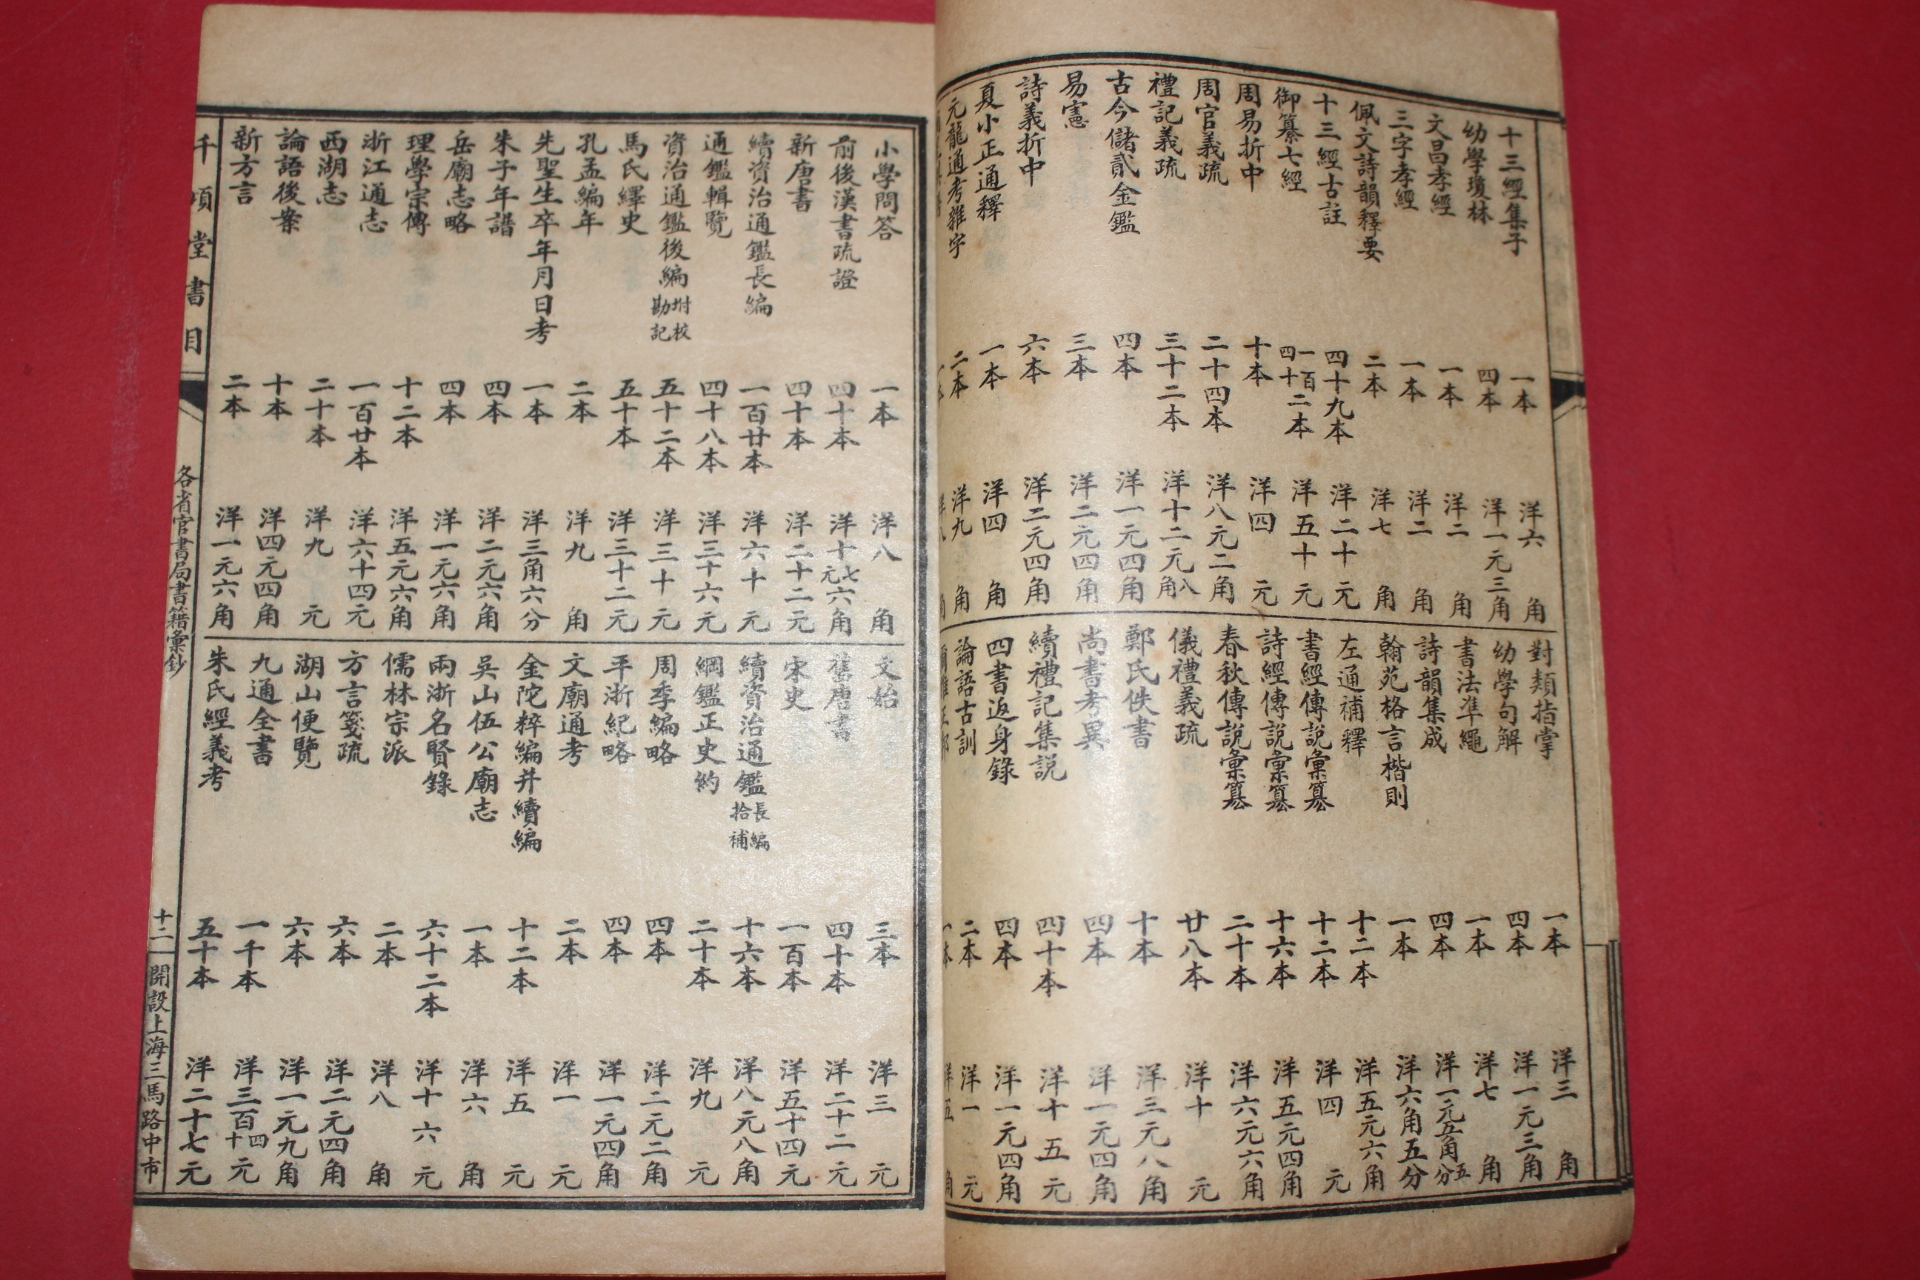 十三經集子 一本 洋六角
幼學瓊林 四本 洋一元三角
文昌孝經 一本 洋二角
三字孝經 一本 洋二角
佩文詩韻釋要 二本 洋七角
十三經古註 四十九本 洋二十元
御纂七經 一百四十二本 洋五十元
周易折中 十本 洋四元
周官義疏 二十四本 洋八元二角
禮記義疏 三十二本 洋十二元八角
古今儲貳金鑑 四本 洋一元四角
易憲 三本 洋二元四角
詩義折中 六本 洋二元四角
夏小正通釋 一本 洋四角
元龍通考雜字 二本 洋九角
一本 洋八角
對類指掌 一本 洋三角
幼學句解 四本 洋一元三角
書法準繩 一本 洋七角
詩韻集成 四本 洋一元五角五分
翰苑格言楷則 一本 洋六角五分
左通補釋 十二本 洋五元六角
書經傳說彙纂 十二本 洋四元
詩經傳說彙纂 十六本 洋五元四角
春秋傳說彙纂 二十本 洋六元六角
儀禮義疏 廿八本 洋十元
鄭氏佚書 十本 洋三元八角
尚書考異 四本 洋一元四角
續禮記集説 四十本 洋十五元
四書返身錄 四本 洋一元四角
論語古訓 二本 洋一元
一本 洋五角
小學問答 一本 洋八角
前後漢書疏證 四十本 洋十七元六角
新唐書 四十本 洋二十二元
續資治通鑑長編 一百廿本 洋六十元
通鑑輯覽 四十八本 洋三十六元
資治通鑑後編坿校勘記 五十二本 洋三十元
馬氏繹史 五十本 洋三十二元
孔孟編年 二本 洋九角
先聖生卒年月日考 一本 洋三角六分
朱子年譜 四本 洋二元六角
岳廟志略 四本 洋一元六角
理學宗傳 十二本 洋五元六角
浙江通志 一百廿本 洋六十四元
西湖志 二十本 洋九元
論語後案 十本 洋四元四角
新方言 二本 洋一元六角
文始 三本 洋三元
舊唐書 四十本 洋二十二元
宋史 一百本 洋五十四元
續資治通鑑長編拾補 十六本 洋八元八角
綱鑑正史約 二十本 洋九元
周季編略 四本 洋二元二角
平浙紀略 四本 洋一元四角
文廟通考 二本 洋一元
金陀粹編并續編 十二本 洋五元
吳山伍公廟志 一本 洋六角
兩浙名賢錄 六十二本 洋十六元
儒林宗派 二本 洋八角
方言箋疏 六本 洋二元四角
湖山便覽 六本 洋一元九角
九通全書 一千本 洋三百四十元
朱氏經義考 五十本 洋二十七元
千頃堂書目 各省官書局書籍彙鈔 十二 開設上海三馬路中市